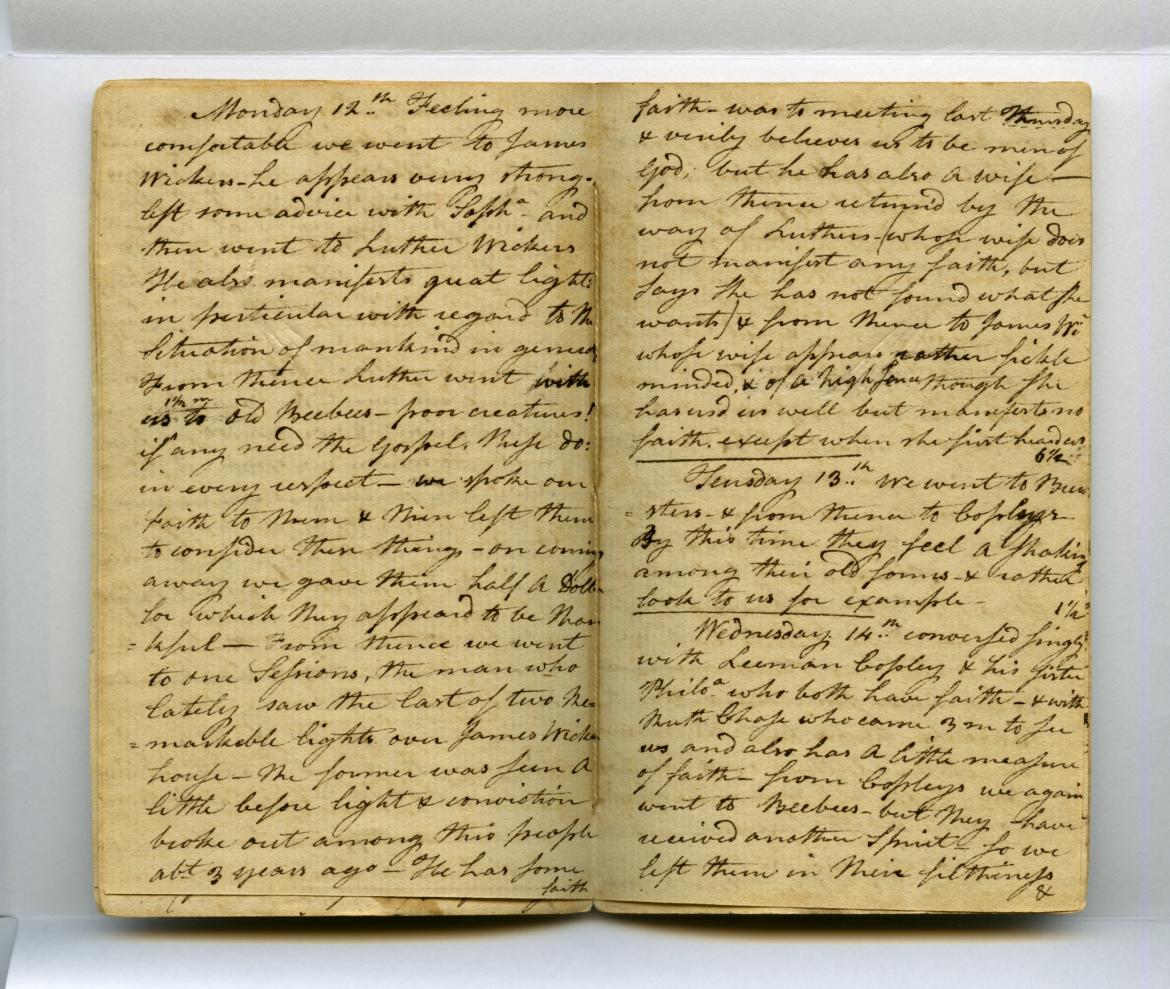 Monday 12.th Feeling more
comfortable we went to James
Wickers - he appears very strong -
left some advice with Josha and
then went to Luther Wickers
He also manifests great light:
in perticular with regard to th
Situation of mankind in general
From thence Luther went with
1½ m
us to old Beebees - poor creatures!
if any need the Gospel, these do:
in every respect - we spoke our
faith to them & then left them
to consider these things - on coming
away we gave them half a Doll
for which they appeard to be than
=kful — From thence we went
to one Sessions, the man who
lately saw the last of two Re=
=markeble lights over James Wicke
house - the former was seen a
little before light & conviction
broke out among this people
abt. 3 years ago - He has some
faith
faith - was to meeting last Thursday
& verily believes us to be men of
God; but he has also a wife —
from thence return'd by the
way of Luthers (whose wife does
not manifest any faith, but
says she has not found what she
wants) & from thence to James Wi
whose wife appears rather fickle
minded, & of a high though she
has usd us well but manifests no
faith, except when she first heard us
6½
Tuesday 13.th We went to Brew
=sters - & from thence to Copleys
By this time they feel a shaking
among their old forms - & rather
look to us for example -
1½
Wednesday 14.th conversed singly
with Leeman Copley & his sister
Philoa who both have faith - & with
Ruth Chase who came 3 m to see
us and also has a little measure
of faith - from Copleys we again
went to Beebees - but they have
received another Spirit - so we
left them in their filthiness
&